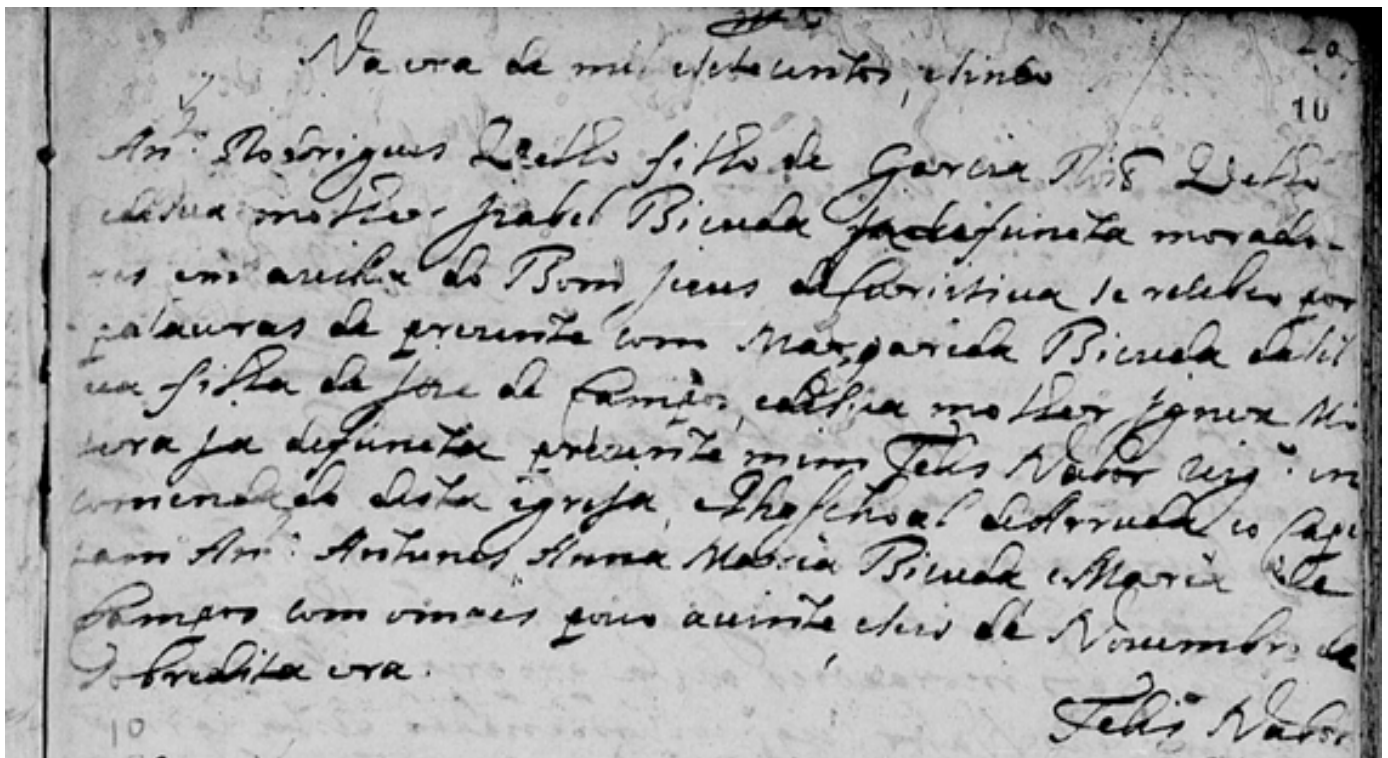 Na era de mil e sete centos, e sinco
10
An.º Rodrigues Velho filho de Garcia Roiz Velho
e de sua molher Izabel Bicuda ja defuncta morado-
res em a vila do Bom Jesus de se recebeo por
palauras de prezente com Margarida Bicuda da Sil
ua filha de Joze de Campos, e de sua molher Ignes Mo
ja defuncta prezente mim Felis Nabor uig.º in
comendado desta igreja, e Phaschoal de Arruda e o Capi
tam An.º Antunes Anna Maria Bicuda e Maria de
Campos com o mais pouo a uinte e seis de Nouembro da
Sobredita era.
Felis Nabor
10